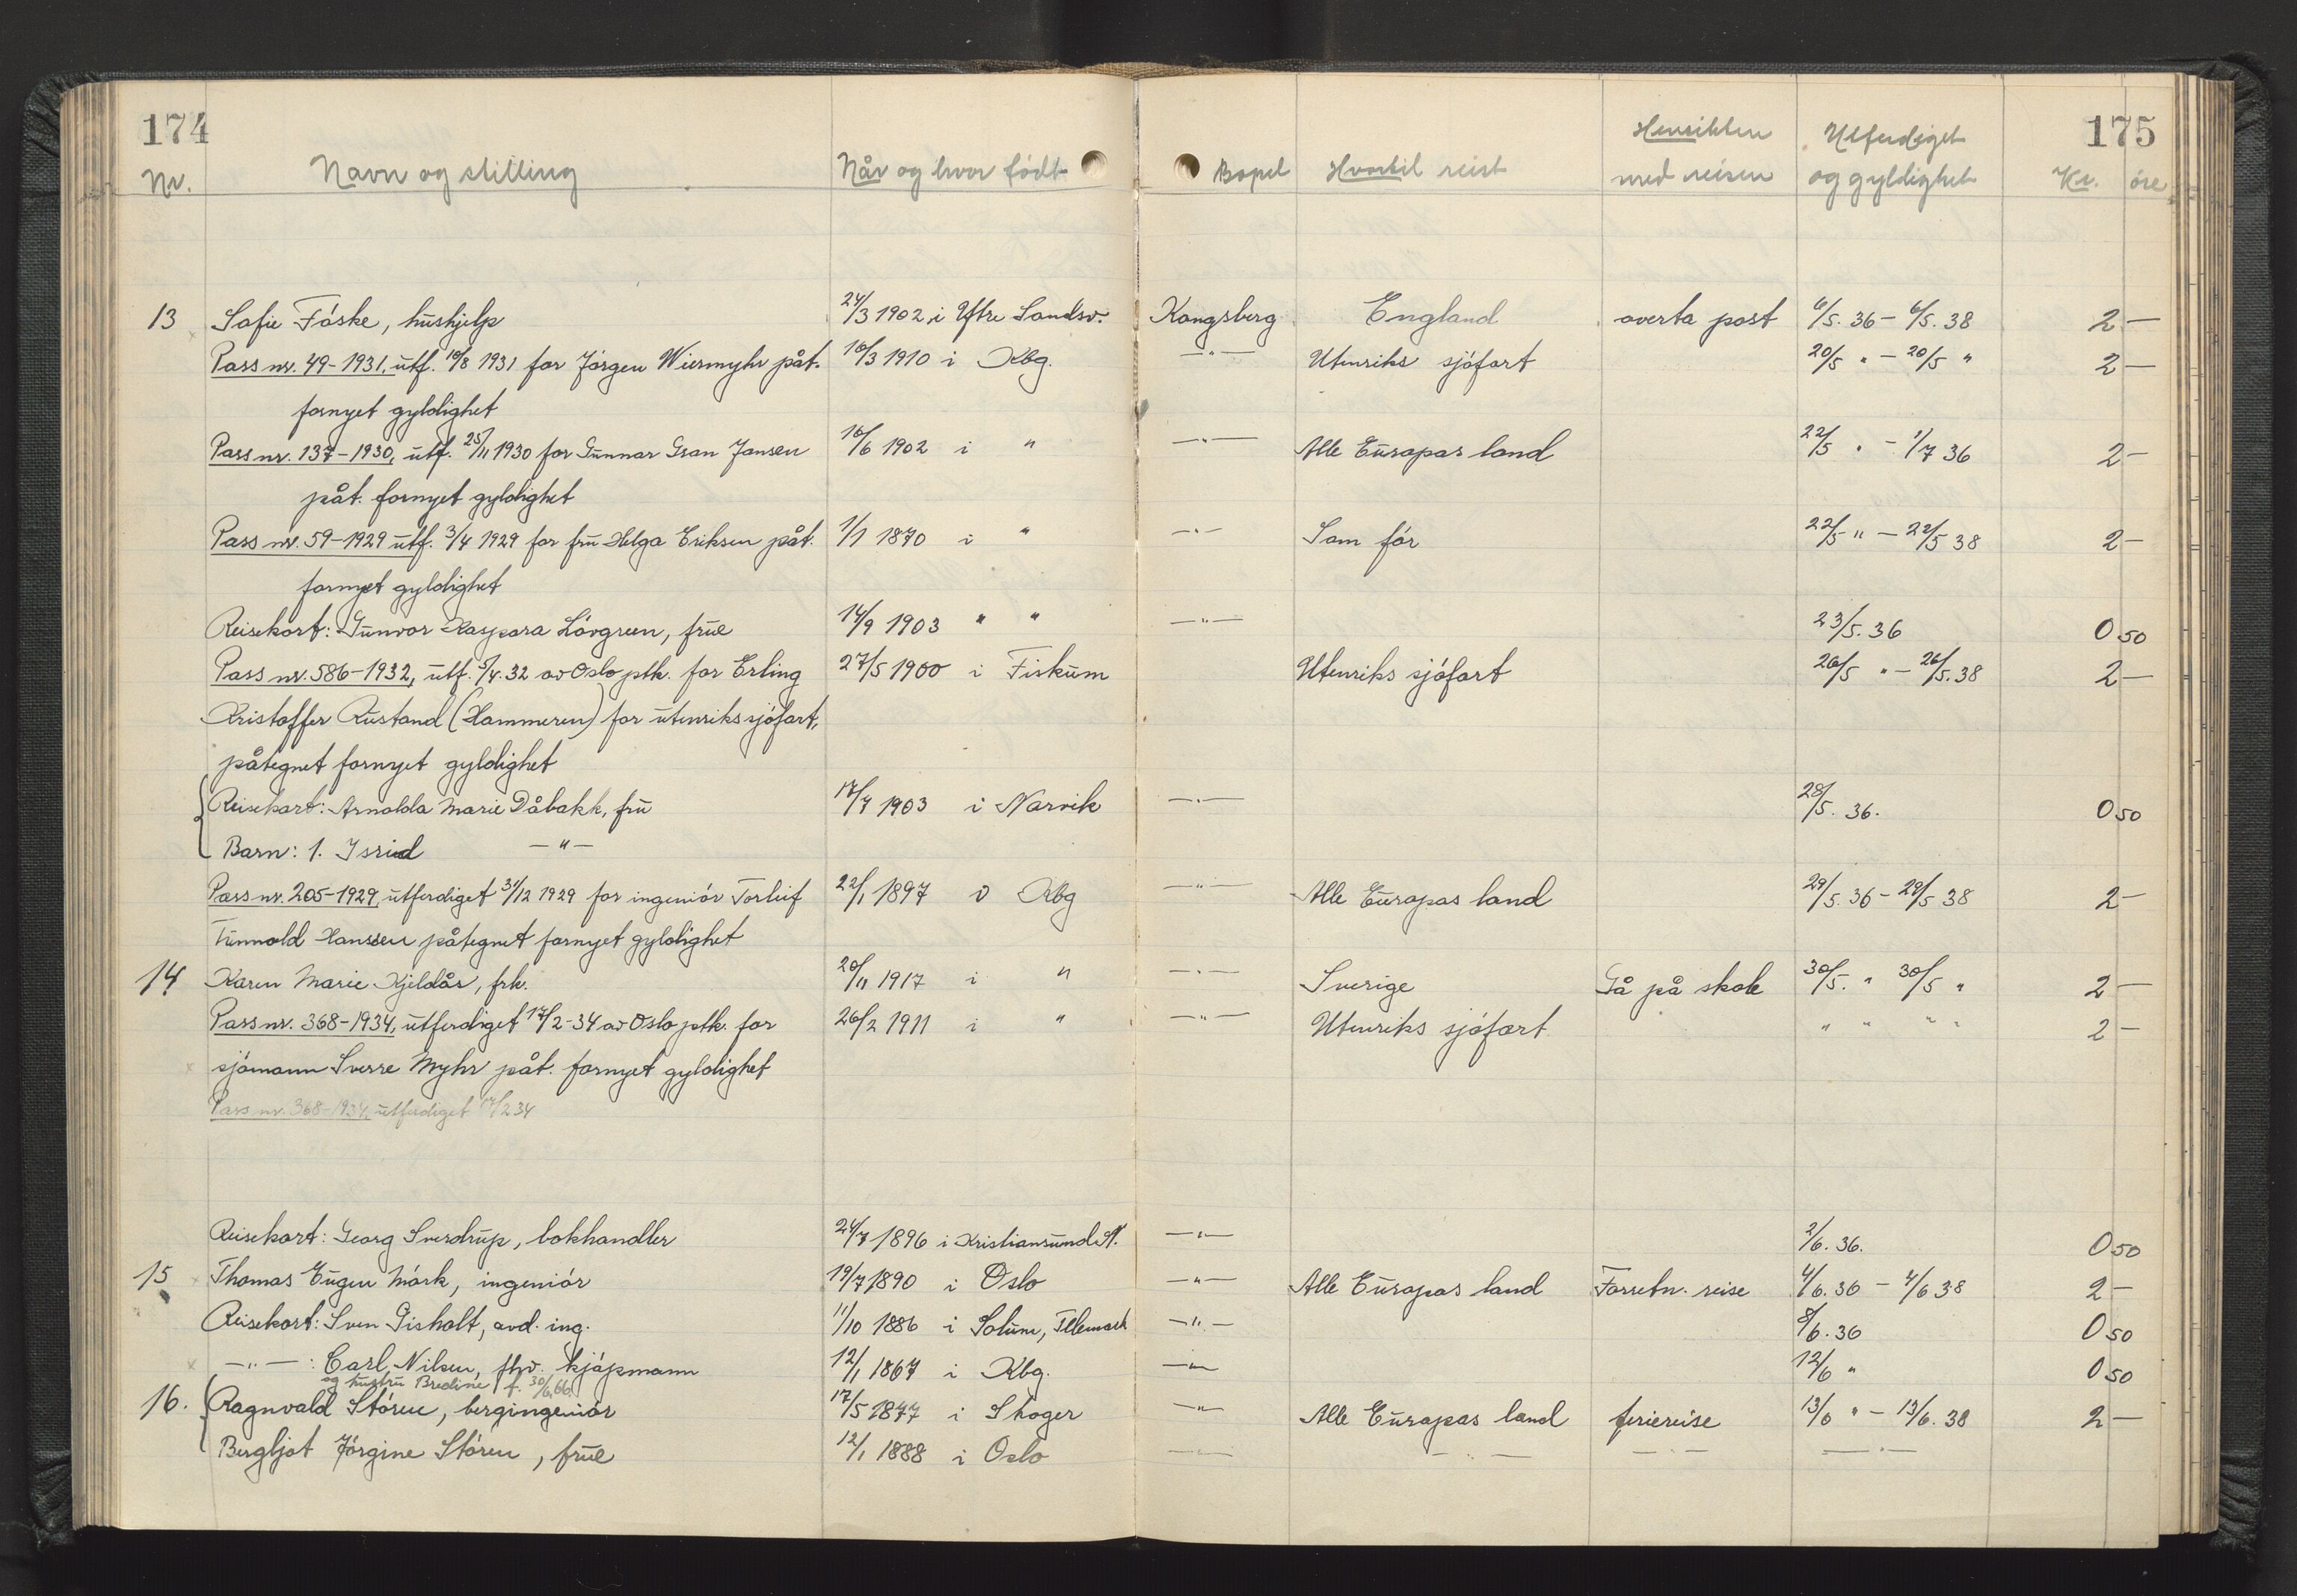 174 175
Hensikten Utferdiget
Nr. Navn og stilling Når og hvor født Bopel Hvortil reist med reisen og gyldighet Kr. øre
13 Sofie Fóske, hushjelp 24/3 1902 i Yttre Sandsv. Kongsberg England overta post 6/5. 36 – 6/5. 38 2 –
Pass nr. 49-1931, utf. 10/8 1931 for Jórgen Wiermyhr påt. 10/3 1910 i Kbg. —"— Utenriks sjófart 20/5 " – 20/5 " 2 –
fornyet gyldighet
Pass nr. 137-1930, utf. 25/11 1930 for Gunnar Gran Jansen 10/6 1902 i " —"— Alle Europas land 22/5 " – 1/7 36 2 –
påt. fornyet gyldighet
Pass nr. 59-1929 utf. 3/4 1929 for fru Helga Eriksen påt. 1/1 1870 i " —"— Som fór 22/5 " – 22/5 38 2 –
fornyet gyldighet
Reisekort: Gunvor Kaspara Lóvgreen, frue 14/9 1903 " " —"— 23/5. 36 0 50
Pass nr. 586-1932, utf. 5/4. 32 av Oslo ptk. for Erling 27/5 1900 i Fiskum Utenriks sjófart 26/5 " – 26/5. 38 2 –
Kristoffer Rustand (Hammeren) for utenriks sjófart,
påtegnet fornyet gyldighet
Reisekort: Arnolda Marie Dåbakk, fru 17/7 1903 i Narvik —"— 28/5. 36. 0 50
Barn: 1. Isrid —"—
Pass nr. 205-1929, utferdiget 31/12 1929 for ingeniór Torleif 22/1 1897 i Kbg —"— Alle Europas land 29/5. 36 – 29/5 38 2 –
Tunnold Hanssen påtegnet fornyet gyldighet
14 Karen Marie Kjeldås, frk. 20/11 1917 i " —"— Sverige Gå på skole 30/5. " 30/5 " 2 –
Pass nr. 368-1934, utferdiget 17/2-34 av Oslo ptk. for 26/2 1911 i " —"— Utenriks sjófart " " " " 2 –
sjómann Sverre Myhr påt. fornyet gyldighet
Pass nr. 368-1934, utferdiget 17/2 34
Reisekort: Georg Sverdrup, bokhandler 24/7 1896 i Kristiansund N. —"— 2/6. 36. 0 50
15 Thomas Eugen Mórk, ingeniór 19/7 1890 i Oslo —"— Alle Europas land Forretn. reise 4/6. 36 – 4/6 38 2 –
Reisekort: Sven Gisholt, avd. ing. 11/10 1886 i Solum, Telemark —"— 8/6. 36 0 50
—"— : Carl Nilsen, fhv. kjópmann 12/1 1867 i Kbg. —"— 12/6 " 0 50
og hustru Bredine f. 30/6. 66.
16. Ragnvald Stóren, bergingeniór 17/5 1877 i Skoger —"— Alle Europas land feriereise 13/6 " – 13/6. 38 2 –
Bergljot Jórgine Stóren, frue 12/1 1888 i Oslo —"— —"— —"— —"—